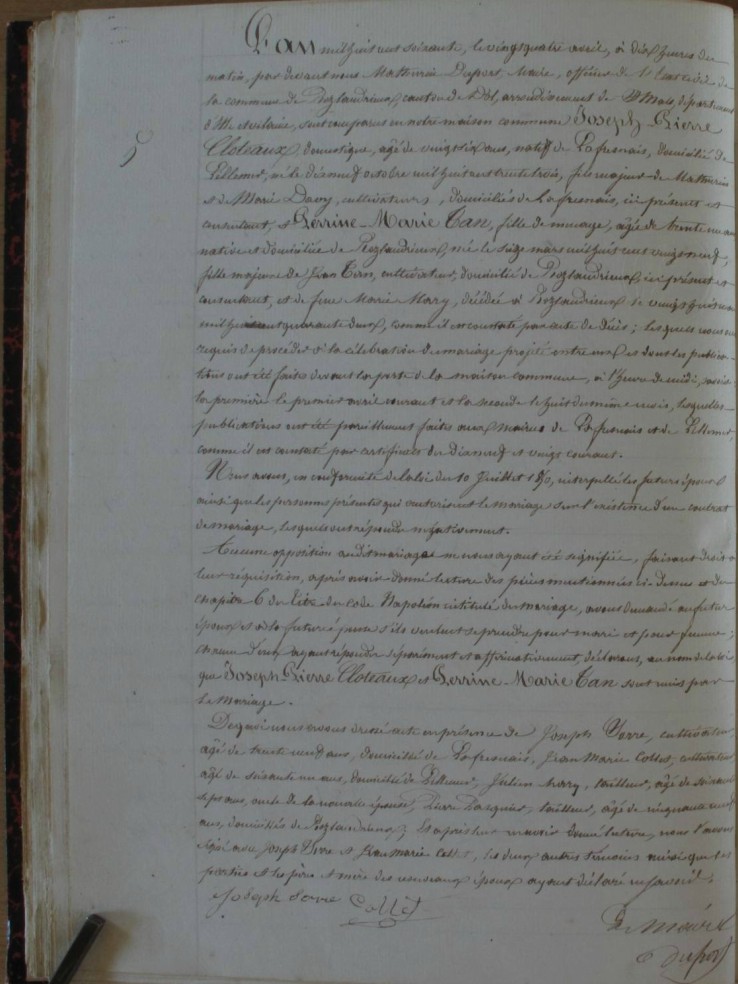 L'an mil huit cent soixante, le vingt quatre avril, à dix heures du
matin, par devant nous Mathurin Duport, Maire, officier de l'Etat civil de
la commune de Rozlandrieux, canton de Dol, arrondissement de St Malo, département
d'Ille et vilaine, sont comparus en notre maison commune Joseph-Pierre
Cloteaux, domestique, âgé de vingt six ans, natif de Lafresnais, domicilié de
Lillemer, né le dix neuf octobre mil huit cent trente trois, fils majeur de Mathurin
et de Marie Davy, cultivateurs, domiciliés de Lafresnais, ici présents et
consentant, et Perrine-Marie Tan, fille de ménage, âgée de trente un ans
native et domiciliée de Rozlandrieux, née le seize mars mil huit cent vingt neuf,
fille majeure de Jean Tan, cultivateur, domicilié de Rozlandrieux, ici présent et
consentant, et de feue Marie Mary, décédée à Rozlandrieux le vingt huit
mil huit cent quarante deux, comme il est constaté par acte de décès; lesquels nous ont
requis de procéder à la célébration du mariage projeté entre eux et dont les publica-
tions ont été faites devant la porte de la maison commune, à l'heure de midi, savoir:
la première le premier avril courant et la seconde le huit du même mois, lesquelles
publications ont été pareillement faites aux mairies de Lafresnais et de Lillemer,
comme il est constaté par certificats du dix neuf et vingt courant.
Nous avons, en conformité de la loi du 10 Juillet 1850, interpellé les futurs époux
ainsi que les personnes présentes qui autorisent le mariage sur l'existence d'un contrat
de mariage, lesquels ont répondu négativement.
Aucune opposition audit mariage ne nous ayant été signifiée, faisant droit à
leur réquisition, après avoir donné lecture des pièces mentionnées ci-dessus et du
chapitre 6 du titre du code Napoléon intitulé du mariage, avons demandé au futur
époux et à la future épouse s'ils veulent se prendre pour mari et pour femme;
chacun d'eux ayant répondu séparément et affirmativement, déclarons, au nom de la loi
que Joseph-Pierre Cloteaux et Perrine-Marie Tan sont unis par
le mariage.
De quoi nous avons dressé acte en présence de Joseph Serre, cultivateur,
âgé de trente neuf ans, domicilié de Lafresnais, Jean Marie Collet, cultivateur
âgé de soixante un ans, domicilié de Lillemer, Julien Mary, tailleur, âgé de soixante
sept ans, oncle de la nouvelle épouse, Pierre Pasquier, tailleur, âgé de cinquante neuf
ans, domiciliés de Rozlandrieux; Et après leur en avoir donné lecture, nous l'avons
signé avec Joseph Serre et Jean Marie Collet, les deux autres témoins ainsi que les
parties et les père et mère des nouveaux époux ayant déclaré ne savoir.
Joseph Serre Collet
Le Maire
Duport